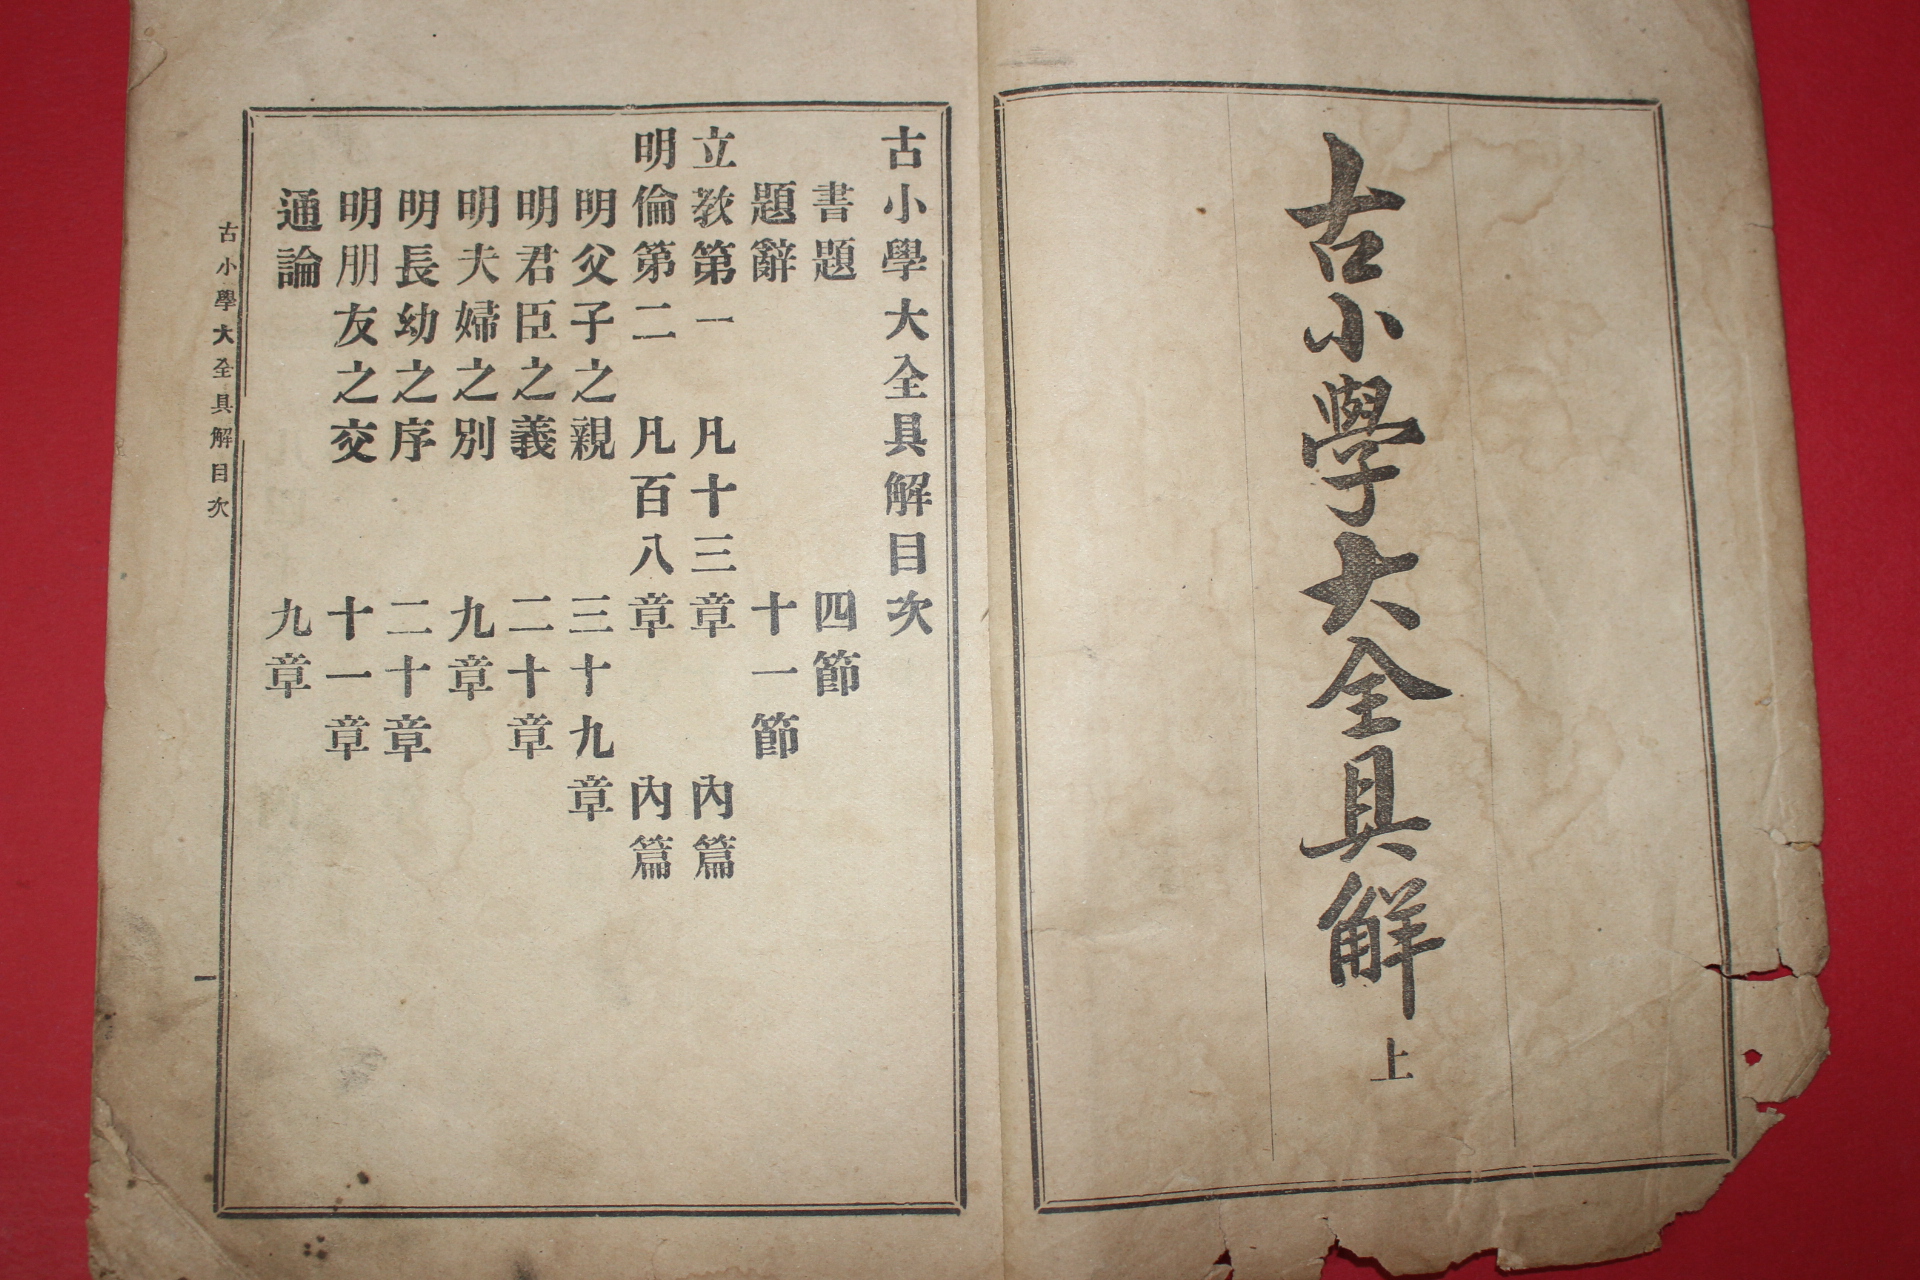 古小學大全具解 上
古小學大全具解目次
書題 四節
題辭 十一節
立敎第一 凡十三章 內篇
明倫第二 凡百八章 內篇
明父子之親 三十九章
明君臣之義 二十章
明夫婦之別 九章
明長幼之序 二十章
明朋友之交 十一章
通論 九章
古小學大全具解目次 一